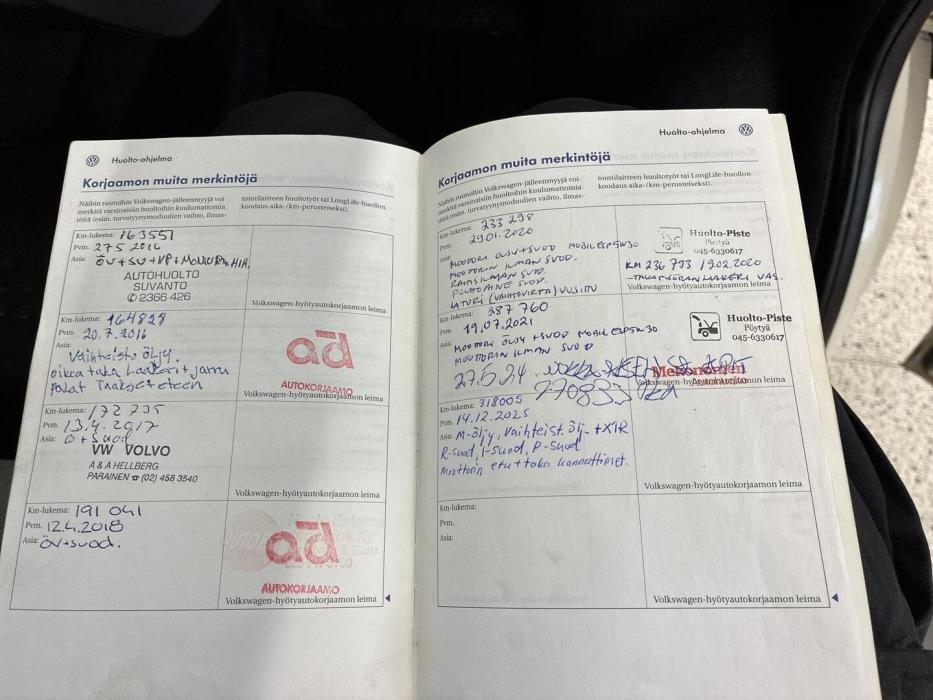 Huolto-ohjelma
Korjaamon muita merkintöjä
Näihin ruutuihin Volkswagen-jälleenmyyjä voi
merkitä varsinaisiin huoltoihin kuulumattomia
töitä (esim. turvatyynymoduulien vaihto, ilmas-
tointilaitteen huoltotyöt tai LongLife-huollon
koodaus aika-/km-perusteiseksi).
Km-lukema: 163551
Pvm. 27.5 2016
Asia: ÖV+SU+VP+
AUTOHUOLTO
SUVANTO
✆ 2366 426
Volkswagen-hyötyautokorjaamon leima
Km-lukema: 164828
Pvm. 20.7.2016
Asia:
Vaihteisto öljy.
oikea taka laakerit, jarru
palat Taakse+eteen
ad
AUTOKORJAAMO
Volkswagen-hyötyautokorjaamon leima
Km-lukema: 172735
Pvm. 13.4.2017
Asia: Ö+Suod
VW VOLVO
A & A HELLBERG
PARAINEN ☎ (02) 458 3540
Volkswagen-hyötyautokorjaamon leima
Km-lukema: 191 041
Pvm. 12.4.2018
Asia: ÖV+suod.
ad
AUTOKORJAAMO
Volkswagen-hyötyautokorjaamon leima
Huolto-ohjelma
Korjaamon muita merkintöjä
Näihin ruutuihin Volkswagen-jälleenmyyjä voi
merkitä varsinaisiin huoltoihin kuulumattomia
töitä (esim. turvatyynymoduulien vaihto, ilmas-
tointilaitteen huoltotyöt tai LongLife-huollon
koodaus aika-/km-perusteiseksi).
Km-lukema: 233 298
Pvm. 29.01.2020
Asia:
MOOTTORI ÖLJY+SUOD MOBIL ESP 5W30
MOOTTORIN ILMAN SUOD.
RAITISILMAN SUOD.
POLTTOAINE SUOD.
LATURI (VAIHTOVIRTA) UUSITTU
Huolto-Piste
Pöytyä
045-6330617
KM 236 793 19.02.2020
TAKAPYÖRÄN LAAKERI VAS.
Volkswagen-hyötyautokorjaamon leima
Km-lukema: 287 760
Pvm. 19.07.2021
Asia:
MOOTTORI ÖLJY +SUOD MOBIL ESP 5W30
MOOTTORIN ILMAN SUOD
27.5.24
Huolto-Piste
Pöytyä
045-6330617
Mekonomen
Autokorjaamon
Volkswagen-hyötyautokorjaamon leima
Km-lukema: 318005
Pvm. 14.12.2025
Asia: M-öljy, Vaihteist. Ölj. +X1R
R-suod, I-Suod, P-Suod
Moottorin etu+taka kannattimet.
Volkswagen-hyötyautokorjaamon leima
Km-lukema:
Pvm.
Asia:
Volkswagen-hyötyautokorjaamon leima